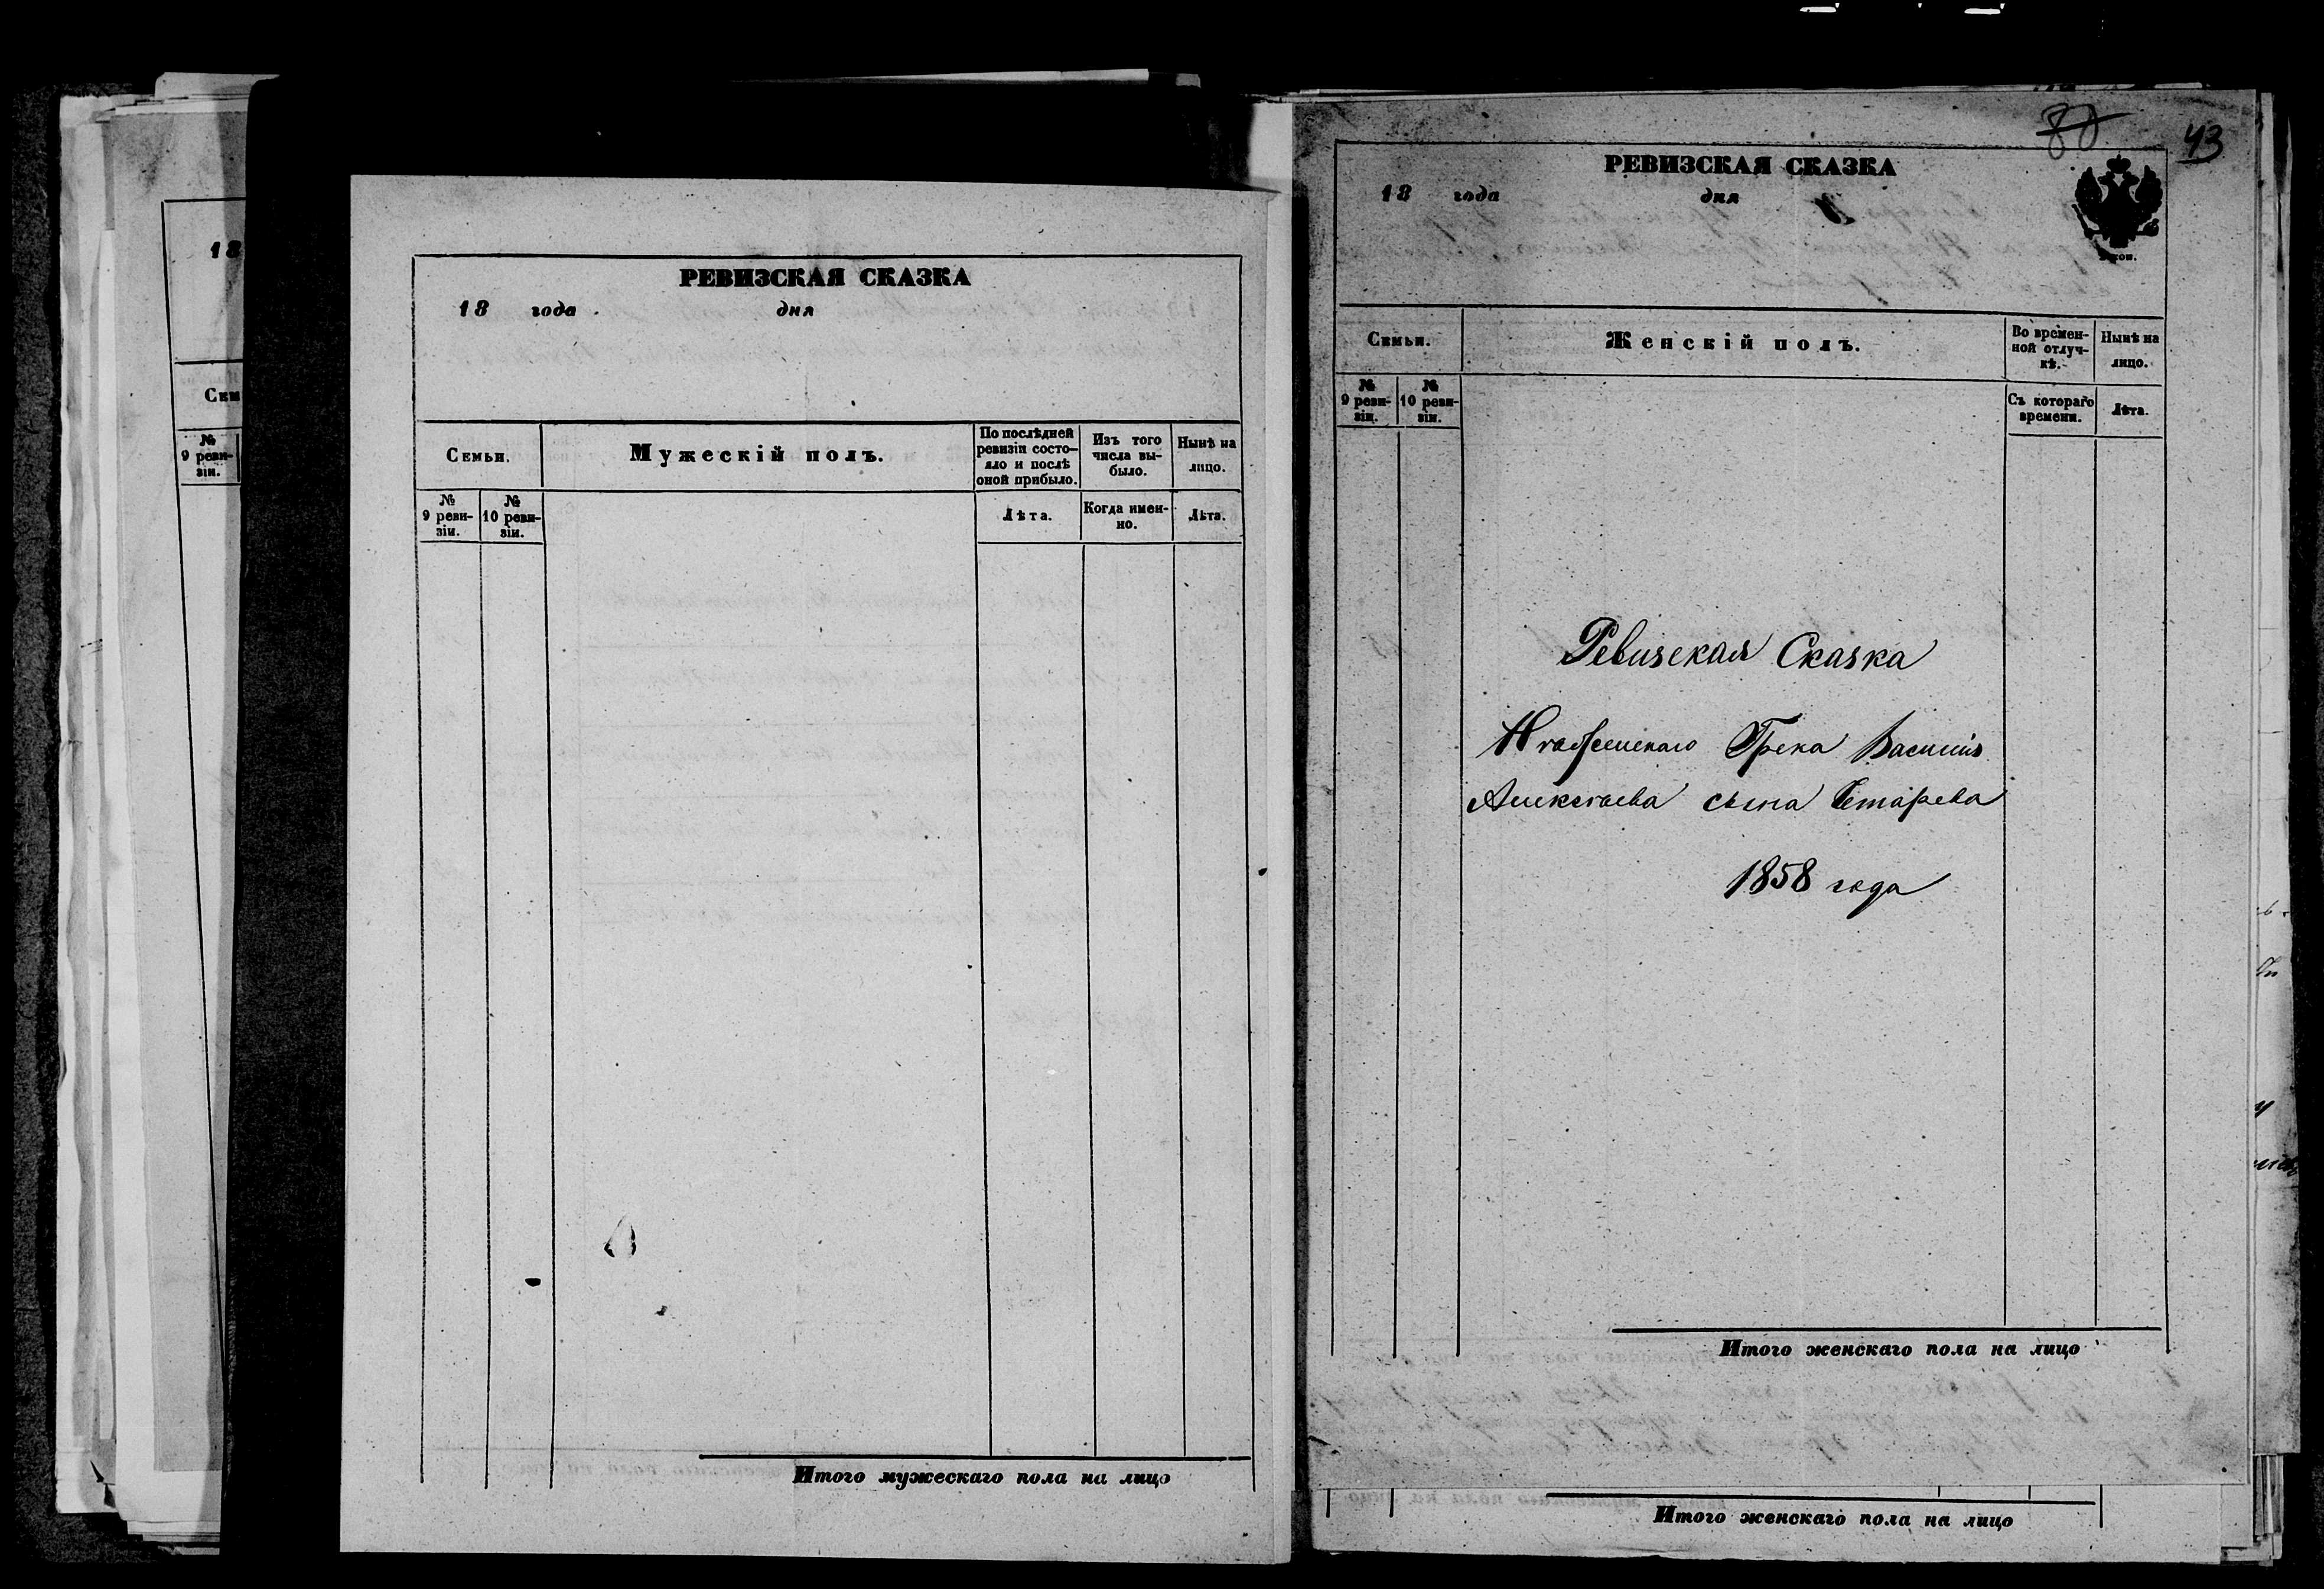 18
Сем
№
9 реви-
зіи.
РЕВИЗСКАЯ СКАЗКА
18 года дня
Семьи.
Мужескій полъ.
По послѣдней
ревизіи состо-
яло и послѣ
оной прибыло.
Изъ того
числа вы-
было.
Нынѣ на
лицо.
№
9 реви-
зіи.
№
10 реви-
зіи.
Лѣта.
Когда имен-
но.
Лѣта.
Итого мужескаго пола на лицо
80
43
РЕВИЗСКАЯ СКАЗКА
18 года дня
Семьи.
Женскій полъ.
Во времен-
ной отлуч-
кѣ.
Нынѣ на
лицо.
№
9 реви-
зіи.
№
10 реви-
зіи.
Съ котораго
времени.
Лѣта.
Ревизская Сказка
Грека Василія
сына
1858 года
Итого женскаго пола на лицо
Итого женскаго пола на лицо